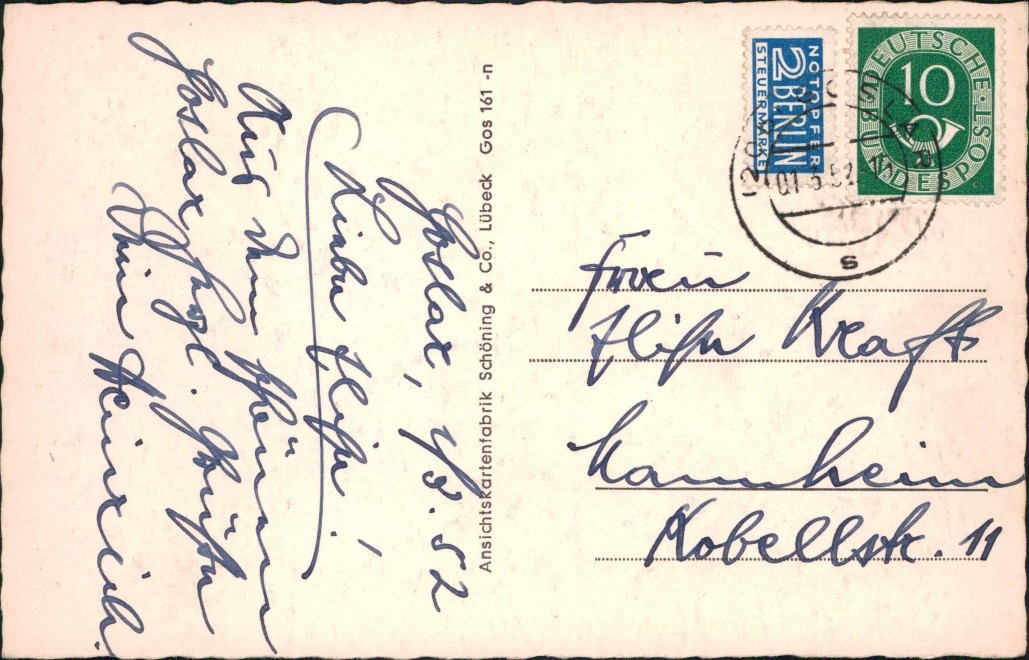 Goslar, 1/3. 52
Liebe Elise!
Aus dem schönen
Goslar hzgl. Grüße
Dein Heinrich.
Ansichtskartenfabrik Schöning & Co., Lübeck Gos 161 -n
NOTOPFER
2 BERLIN
STEUERMARKE
DEUTSCHE
10
BUNDESPOST
GOSLAR
01.3.52
s
Frau
Elise Kraft
Mannheim
Kobellstr. 11